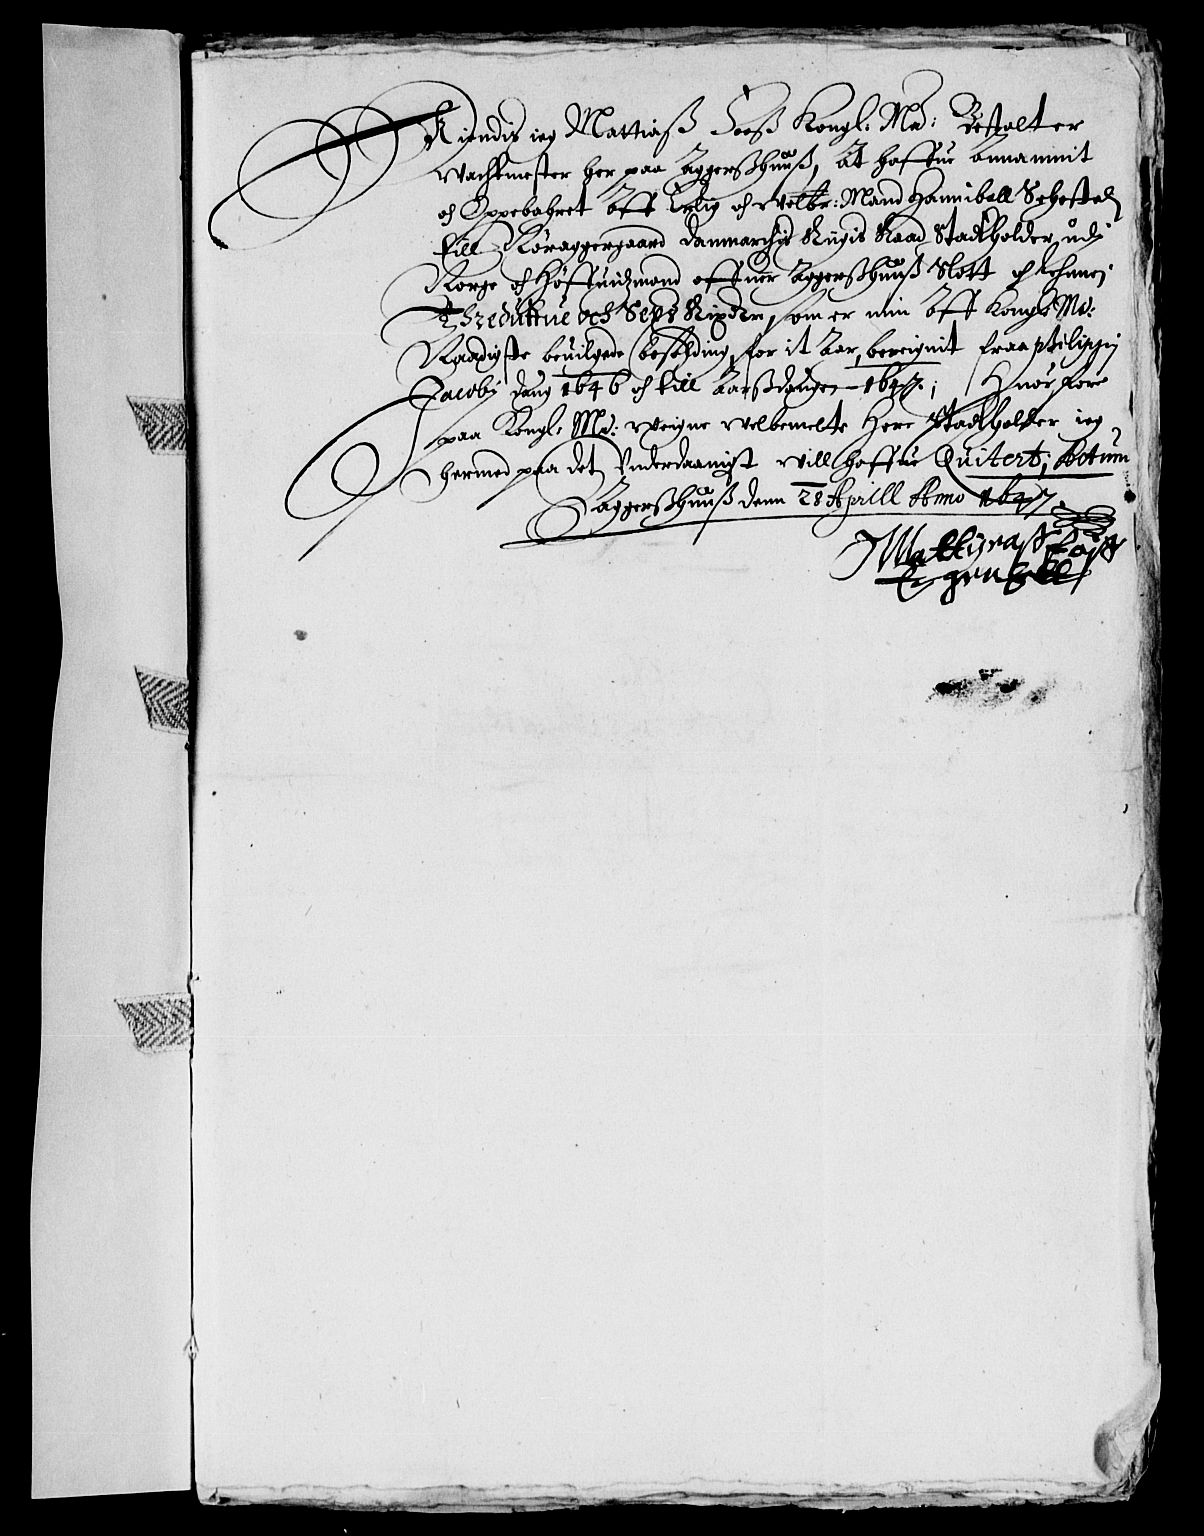 Kiendis ieg Mattiaß Voß Kongl: Ma: Bestalter
Wachtmester her paa Aggerßhuuß, At haffue Annammit
och Oppebahret Aff Erlig och Welbr: Mand Hannibell Sehested
till Nöraggergaard Danmarchis Rigis Raad Stadtholder udj
Norge och Höffuidzmand offuer Aggerßhuuß Slott och Lehn,
Threduffue och Sexs Rixdlr, som er min Aff Kongl Ma:
Naadigste beuilgede besolding, for it Aar, beregnit fraa philippi
Jacobj daug 1646 och till Aarßdaugen 1647; Huor fore
paa Kongl: Ma: Weigne Welbemelte Herr Stadtholder ieg
hermed paa det Underdaanigst will haffue Quitert; Actum
Aggerßhuuß denn 28 Aprill Anno 1647.
Mattyraß
Egenhdt